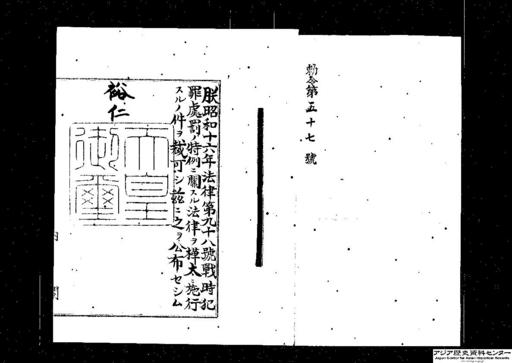 勅令第五十七號
朕昭和十六年法律第九十八號戰時犯
罪處罰ノ特例ニ關スル法律ヲ樺太ニ施行
スルノ件ヲ裁可シ茲ニ之ヲ公布セシム
裕仁
天皇
御璽
内閣
アジア歴史資料センター
Japan Center for Asian Historical Records